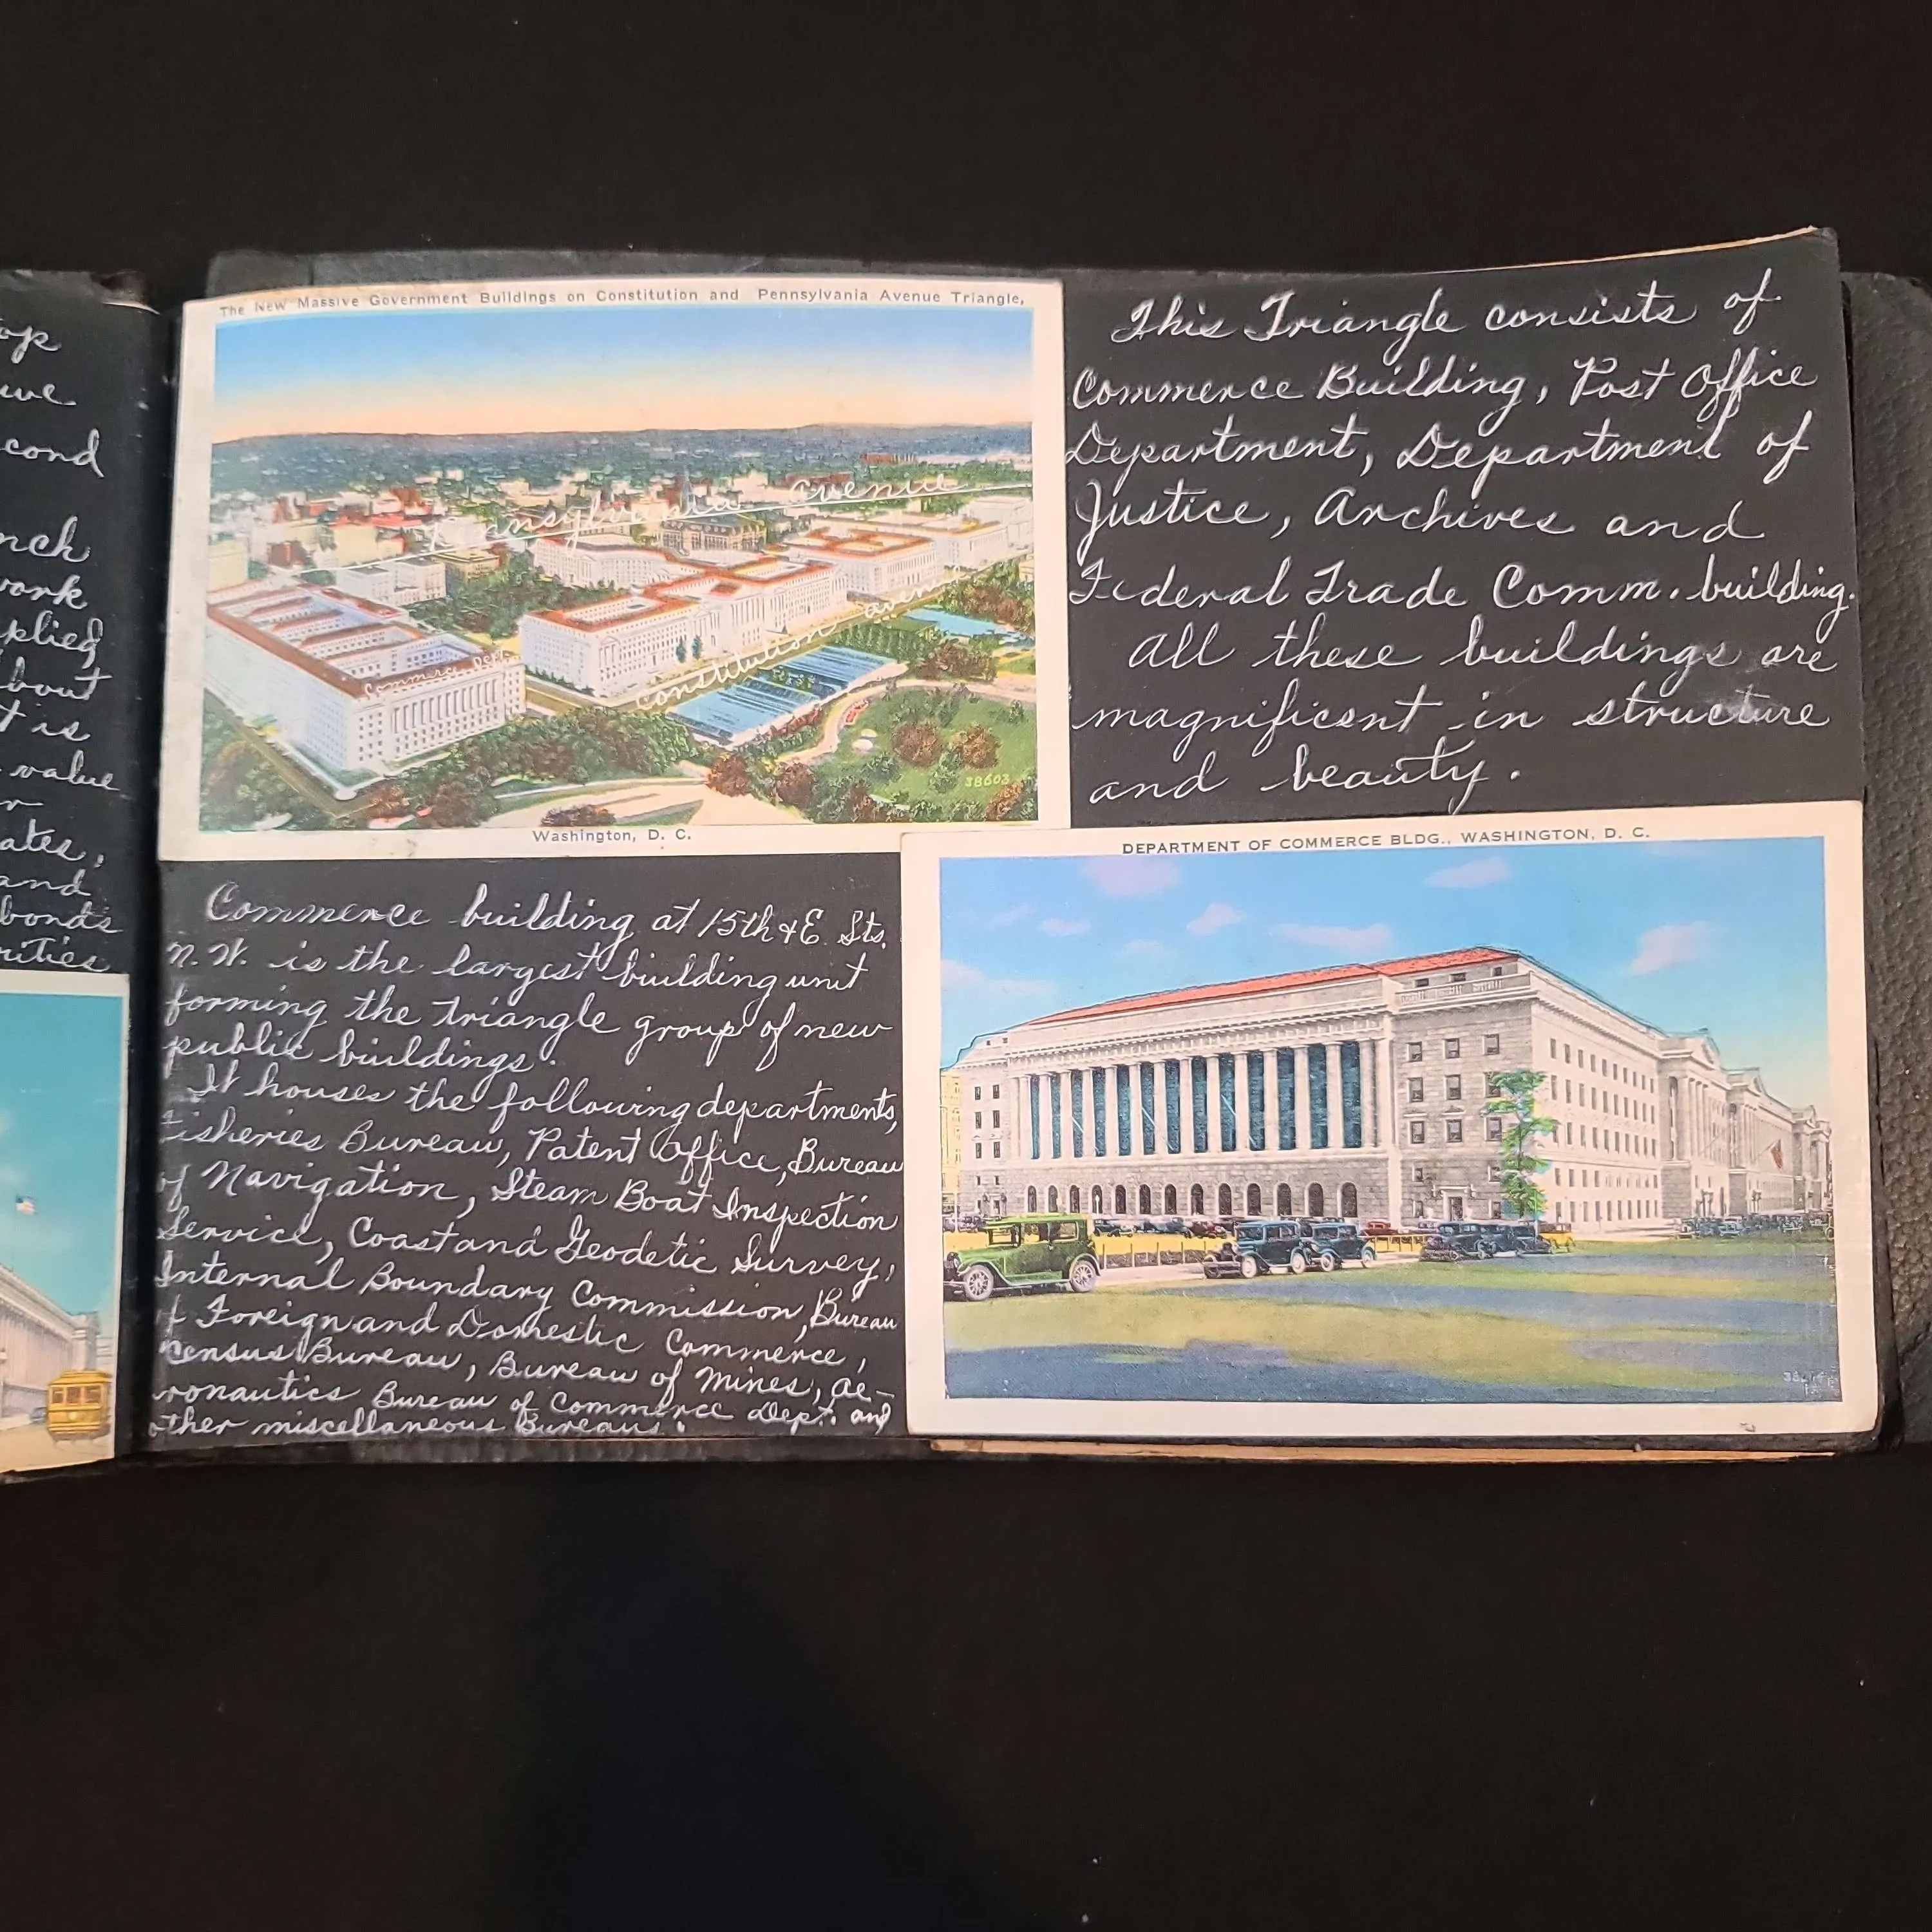 op
we
cond
nch
work
plied
bout
t is
value
r
ates,
and
bonds
rities
The New Massive Government Buildings on Constitution and Pennsylvania Avenue Triangle,
Pennsylvania Avenue
Commerce Dept.
Constitution Aven
38603
Washington, D. C.
This Triangle consists of
Commerce Building, Post Office
Department, Department of
Justice, Archives and
Federal Trade Comm. building.
All these buildings are
magnificent in structure
and beauty.
Commerce building at 15th & E Sts.
N.W. is the largest building unit
forming the triangle group of new
public buildings.
It houses the following departments,
Fisheries Bureau, Patent Office, Bureau
of Navigation, Steam Boat Inspection
Service, Coast and Geodetic Survey,
Internal Boundary Commission, Bureau
of Foreign and Domestic Commerce,
Census Bureau, Bureau of Mines, Ae-
ronautics Bureau of Commerce Dept. and
other miscellaneous Bureaus.
DEPARTMENT OF COMMERCE BLDG., WASHINGTON, D. C.